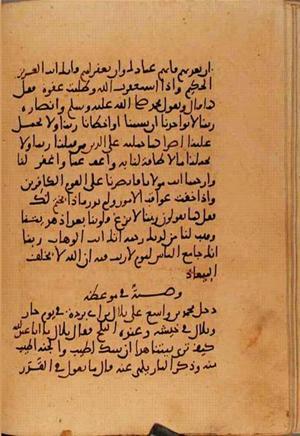 ان تعذبهم فانهم عبادك وان تغفر لهم فانك انت العزيز
الحكيم واذا استعفوت الله وطلبت عفوه فقل
كما قال ويقول محمد صلى الله عليه وسلم وانصاره
ربنا لا تواخذنا ان نسينا او اخطانا ربنا ولا تحمل
علينا اصرا كما حملته على الذين من قبلنا ربنا ولا
تحملنا ما لا طاقة لنا به واعف عنا واغفر لنا
وارحمنا انت مولانا فانصرنا على القوم الكافرين
واذا خفت عواقب الامور ولم تدر ماذا يختم لك
فقل كما يقولون ربنا لا تزغ قلوبنا بعد اذ هديتنا
وهب لنا من لدنك رحمة انك انت الوهاب ربنا
انك جامع الناس ليوم لا ريب فيه ان الله لا يخلف
الميعاد
وصية في موعظة
دخل محمد بن واسع على بلال بن ابي بردة في يوم حار
وبلال في خيشه وعنده الثلج فقال بلال يا ابا عبد الله
كيف ترى بيتنا هذا قال ان بيتك لطيب والجنة اطيب
منه وذكر النار يلهي عنه قال ما تقول في القدر